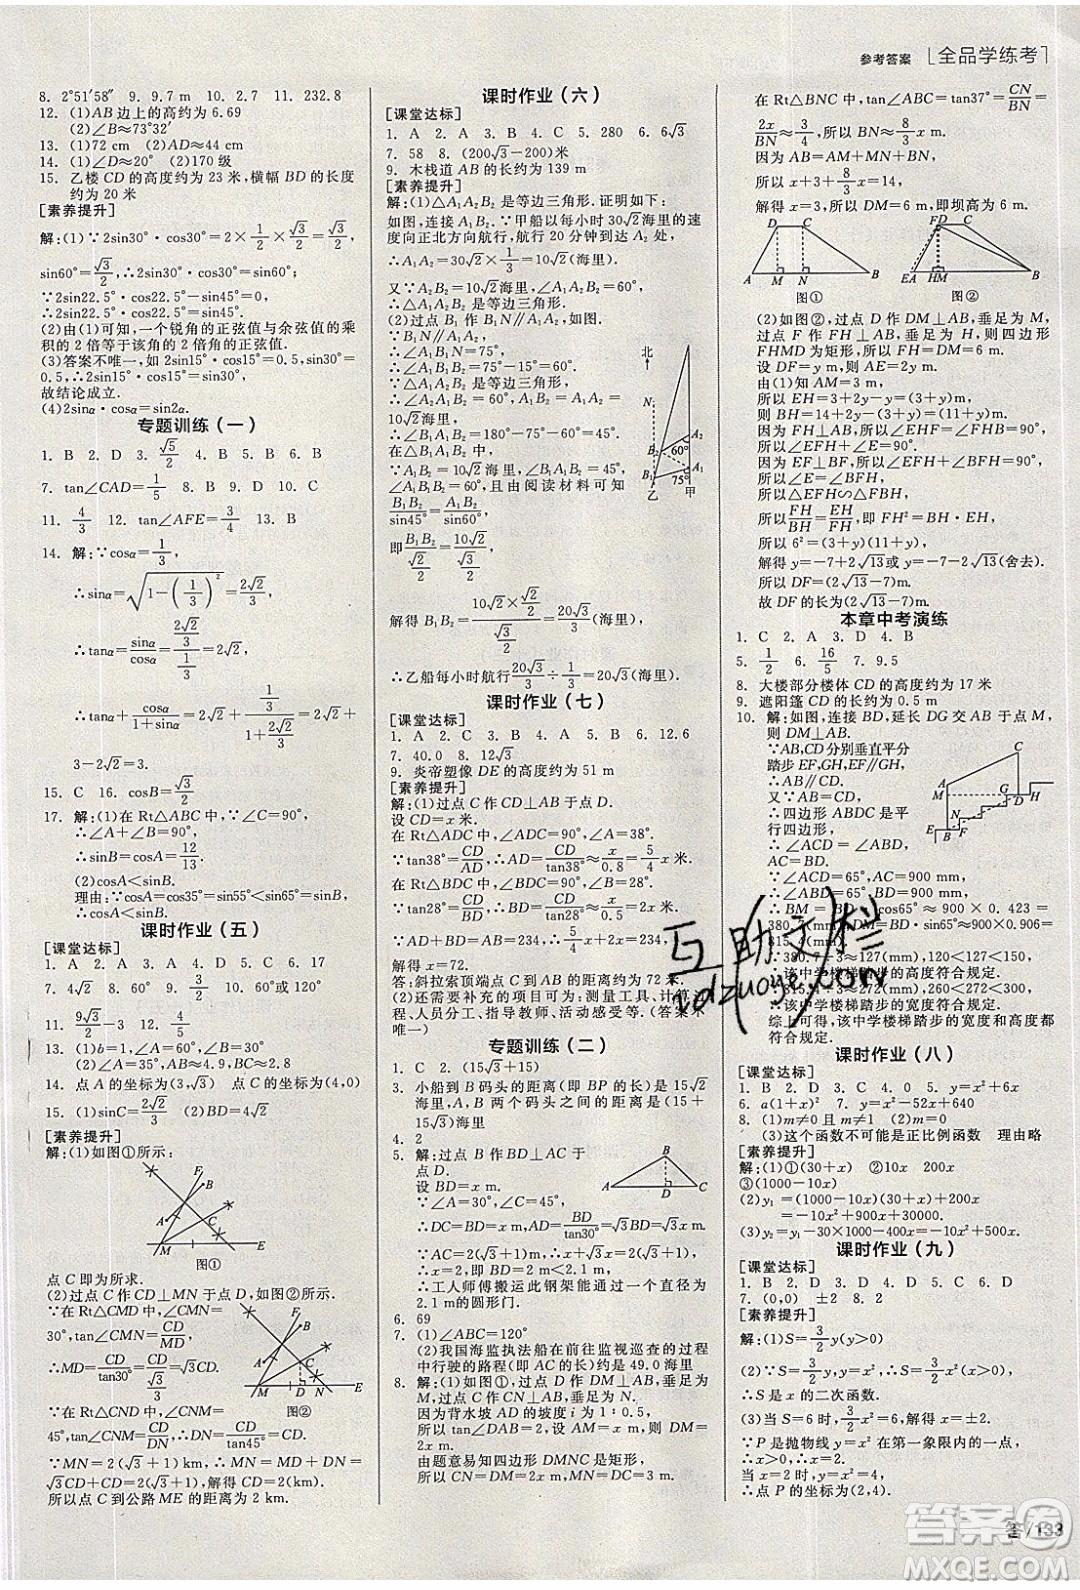 参考答案 [全品学练考]
8. 2°51′58″ 9. 9.7 m 10. 2.7 11. 232.8
12. (1)AB 边上的高约为 6.69
(2)∠B≈73°32′
13. (1)72 cm (2)AD≈44 cm
14. (1)∠ADC≈20° (2)170 级
15. 乙楼 CD 的高度约为 23 米,横幅 BD 的长度
约为 20 米
[素养提升]
解:(1)∵2sin30°·cos30°=2×1/2×√3/2=√3/2,
sin60°=√3/2,∴2sin30°·cos30°−sin60°=0.
∵2sin22.5°·cos22.5°−sin45°=0,
∴2sin22.5°·cos22.5°=sin45°.
(2)由(1)可知,一个锐角的正弦值与余弦值的乘
积的 2 倍等于该角的 2 倍角的正弦值.
(3)答案不唯一,如 2sin15°·cos15°=0.5,sin30°=
0.5,∴2sin15°·cos15°=sin30°.
故结论成立.
(4)2sinα·cosα=sin2α.
专题训练(一)
1. B 2. D 3. √5/2 4. B 5. B 6. B
7. tan∠CAD=1/5 8. B 9. D 10. C
11. 4/3 12. tan∠AFE=3/4 13. B
14. 解:∵cosα=1/3,
∴sinα=√(1−(1/3)²)=2√2/3,
tanα=(2√2/3)/(1/3)=2√2,
∴tanα+cosα/(1+sinα)=2√2+(1/3)/(1+2√2/3)=2√2+
3−2√2=3.
15. C 16. cosB=√3/2
17. 解:(1)在 Rt△ABC 中,∵∠C=90°,
∴∠A+∠B=90°,
∴sinB=cosA=12/13.
(2)cosA<sinB.
理由:∵cosA=cos35°=sin55°<sin65°=sinB,
∴cosA<sinB.
课时作业(五)
[课堂达标]
1. A 2. A 3. D 4. D 5. C 6. 17
7. 4√2 8. 60° 9. 3/2 10. 60°或 120°
11. 9√3/2 12. 3
13. (1)b=1,∠A=60°,∠B=30°
(2)∠A≈25°,∠B≈65°,a≈4.9
14. 点 A 的坐标为(1,√3) 点 C 的坐标为(4,0)
15. (1)sinC=2√2/3 (2)BD=4√2
[素养提升]
解:(1)如图①所示:
图①
点 C 即为所求.
(2)过点 C 作 CD⊥MN 于点 D,如图②所示.
∵在 Rt△CMD 中,∠CMN=
30°,tan∠CMN=CD/MD,
∴MD=CD/tan30°=CD/(√3/3)=√3CD.
∵在 Rt△CND 中,∠CNM=
45°,tan∠CNM=CD/DN,∴DN=CD/tan45°=CD.
图②
∵MN=2(√3+1)km,∴MN=MD+DN=
√3CD+CD=2(√3+1)km,解得 CD=2 km.
所以点 C 到公路 ME 的距离为 2 km.
课时作业(六)
[课堂达标]
1. A 2. A 3. B 4. C 5. 280 6. 6√3
7. 58 8. (200√3−200)米
9. 木栈道 AB 的长约为 139 m
[素养提升]
解:(1)△A₁A₂B₂ 是等边三角形.证明如下:
如图,连接 A₁B₂.∵甲船以每小时 30√2 海里的速
度向正北方向航行,航行 20 分钟到达 A₂ 处,
∴A₁A₂=30√2×1/3=10√2(海里).
又∵A₂B₂=10√2 海里,∠A₁A₂B₂=60°,
∴△A₁A₂B₂ 是等边三角形.
(2)过点 B₁ 作 B₁N∥A₁A₂,如图.
∵B₁N∥A₁A₂,
∴∠A₁B₁N=75°,
∴∠A₁B₁B₂=75°−15°=60°.
∵△A₁A₂B₂ 是等边三角形,
∴∠A₂A₁B₂=60°,A₁B₂=A₁A₂=
10√2海里,
∴∠B₁A₁B₂=180°−75°−60°=45°.
在△A₁B₁B₂ 中,
∵A₁B₂=10√2海里,∠A₁B₁B₂=60°,
∠B₁A₁B₂=45°,且由阅读材料可知
B₁B₂/sin45°=A₁B₂/sin60°,
即B₁B₂/(√2/2)=10√2/(√3/2),
解得 B₁B₂=(10√2×√2/2)/(√3/2)=20√3/3(海里),
∴乙船每小时航行20√3/3÷1/3=20√3(海里).
课时作业(七)
[课堂达标]
1. A 2. C 3. B 4. A 5. C 6. 12.6
7. 40.0 8. 12√3
9. 炎帝塑像 DE 的高度约为 51 m
[素养提升]
解:(1)过点 C 作 CD⊥AB 于点 D.
设 CD=x 米.
在 Rt△ADC 中,∠ADC=90°,∠A=38°.
∵tan38°=CD/AD,∴AD=CD/tan38°≈x/0.8=5/4x 米.
在 Rt△BDC 中,∠BDC=90°,∠B=28°.
∵AD+BD=AB=234 米,∴5/4x+2x=234,
解得 x=72.
答:斜拉索顶端点 C 到 AB 的距离约为 72 米.
(2)还需要补充的项目可为:测量工具、计算过
程、人员分工、指导教师、活动感受等.(答案不
唯一)
专题训练(二)
1. C 2. (15√3+15)
3. 小船到 B 码头的距离(即 BP 的长)是 15√2
海里,A,B 两个码头之间的距离是(15+
15√3)海里
4. 2
5. 解:过点 B 作 BD⊥AC 于
点 D.
设 BD=x m.
∵∠A=30°,∠C=45°,
∴DC=BD=x m,AD=BD/tan30°=√3BD=√3x m.
∵AC=2(√3+1)m,∴x+√3x=2(√3+1),
∴x=2.
∴工人师傅搬运此钢架能通过一个直径为
2.1 m的圆形门.
6. 69
7. (1)∠ACB=120°
(2)我国海监执法船在前往监视巡查的过程中
行驶的路程(即 AC 的长)约是 49.0 海里
8. 解:(1)如图①,过点 D 作 DM⊥AB,垂足为
M,过点 C 作 CN⊥AB,垂足为 N.
因为背水坡 AD 的坡度 i 为 1∶0.5,
所以 tan∠DAB=2.设 AM=x m,则 DM=
2x m.
由题意易知四边形 DMNC 是矩形,
所以 DM=CN=2x m.
在 Rt△BNC 中,tan∠ABC=tan37°=CN/BN=
2x/BN≈3/4,所以 BN≈8/3x m.
因为 AM+MN+BN=AB,
所以 x+3+8/3x=14,
解得 x=3,所以 DM=6 m,即坝高为 6 m.
图① 图②
(2)如图②,过点 D 作 DM⊥AB,垂足为 M,
过点 F 作 FH⊥AB,垂足为 H,则四边形
FHMD 为矩形,所以 FH=DM=6 m.
设 DF=y m,则 AE=2y m.
由(1)知 AM=3 m,
所以 EH=3+2y−y=(3+y)m,
则 BH=14+2y−(3+y)=(11+y)m.
所以 FH⊥AB,EF⊥BF,
所以∠EHF=∠FHB=90°,
∠EFH+∠E=∠EFH+∠BFH=90°,
所以∠E=∠BFH,
所以△EFH∽△FBH,
所以FH/HB=EH/FH,即 FH²=EH·HB,
所以 6²=(3+y)(11+y),
解得 y=−7+2√13或 y=−7−2√13(舍去).
所以 DF=(2√13−7)m.
故 DF 的长为(2√13−7)m.
本章中考演练
1. C 2. A 3. D 4. B
5. 1/2 6. 16/5 7. 9.5
8. 大楼部分楼体 CD 的高度约为 17 米
9. 遮阳篷 CD 的长约为 0.5 m
10. 解:如图,连接 BD,延长 DG 交 AB 于点 M,
则 DM⊥AB.
∵AB,CD 分别垂直平分
踏步 EF,GH,EF∥GH,
∴AB∥CD.
又∵AB=CD,
∴四边形 ABDC 是平
行四边形,
∴∠ACD=∠ABD=
65°,AC=BD.
∵∠ACD=65°,AC=900 mm,
∴∠ABD=65°,BD=900 mm,
∴该中学楼梯踏步的高度符合规定.
∴该中学楼梯踏步的宽度符合规定.
综上可得,该中学楼梯踏步的宽度和高度都
符合规定.
课时作业(八)
[课堂达标]
1. B 2. D 3. C 4. D 5. y=x²+6x
6. a(1+x)² 7. y=x²−52x+640
8. (1)m=0 (2)m≠0且m≠1
(3)这个函数不可能是正比例函数 理由略
[素养提升]
解:(1)①(30+x) ②10x 200x
③(1000−10x)
(2)y₁=(1000−10x)(30+x)
(3)y₂=
课时作业(九)
[课堂达标]
1. B 2. D 3. A 4. C 5. D 6. D
7. (0,0) ±2 8. 2
[素养提升]
解:(1)S=3/2y(y>0)
(2)∵S=3/2y,y=x²,∴S=3/2x²(x>0),
∴S 是 x 的二次函数.
(3)当 S=6 时,3/2x²=6,∴x=±2.
∵P 是抛物线 y=x² 在第一象限内的点,
∴x>0,∴x=2.
当 x=2 时,y=x²=4,
∴点 P 的坐标为(2,4).
互助文栏
zdzuoye.com
答案圈
MXQE.COM
答/133